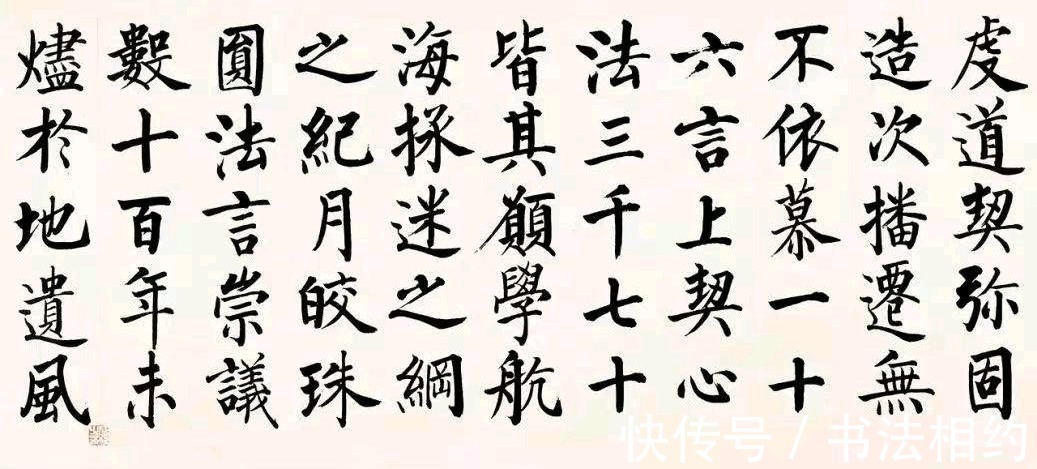 虔道契弥固
造次播遷無
不依慕一十
六言上契心
法三千七十
皆其願學航
海拯迷之綱
之紀月皎珠
圓法言崇議
數十百年未
燼於地遺風
快传号 / 书法相约